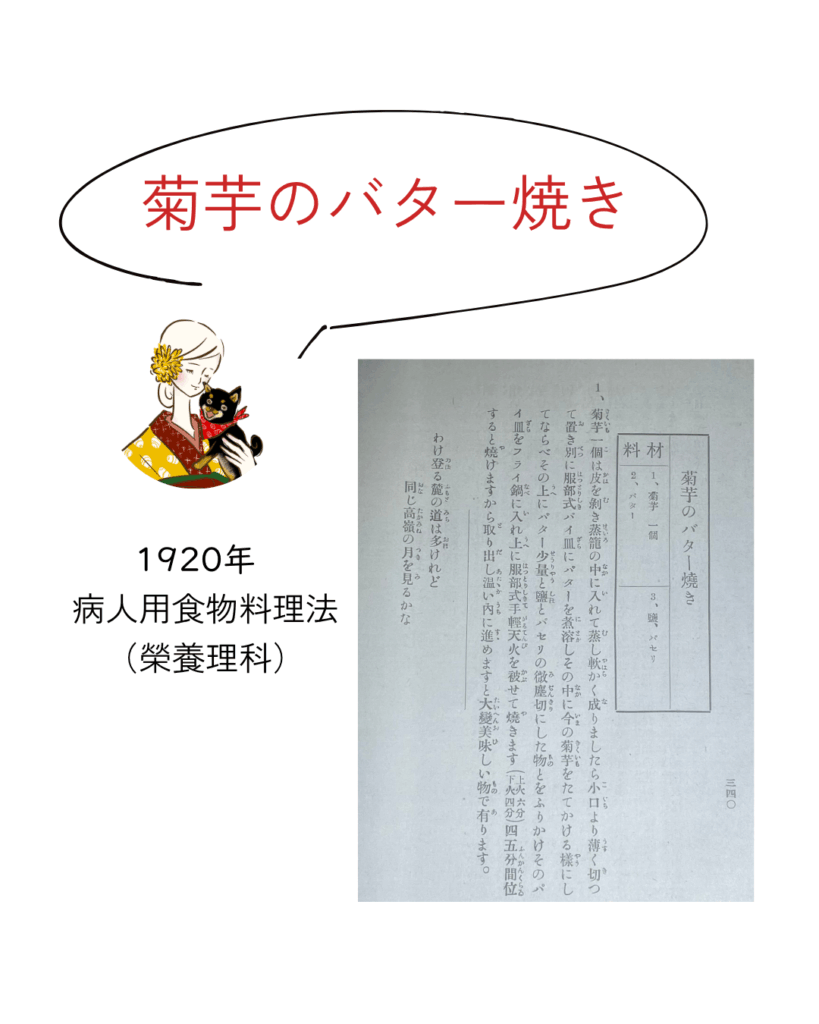 菊芋のバター焼き
1920年
病人用食物料理法
（榮養理科）
三四〇
菊芋のバター燒き
材料
1、菊芋 一個
2、バタ1
3、鹽、パセリ
1、菊芋一個は皮を剝き蒸籠の中に入れて蒸し軟かく成りましたら小口より薄く切つ
て置き別に服部式パイ皿にバターを煮溶しその中に今の菊芋をたてかける樣にし
てならべその上にバター少量と鹽とパセリの微塵切にした物とをふりかけそのパ
イ皿をフライ鍋に入れ上に服部式手輕天火を被せて燒きます（上火六分下火四分）四五分間位
すると燒けますから取り出し温い内に進めますと大變美味しい物で有ります。
わけ登る麓の道は多けれど
同じ高嶺の月を見るかな